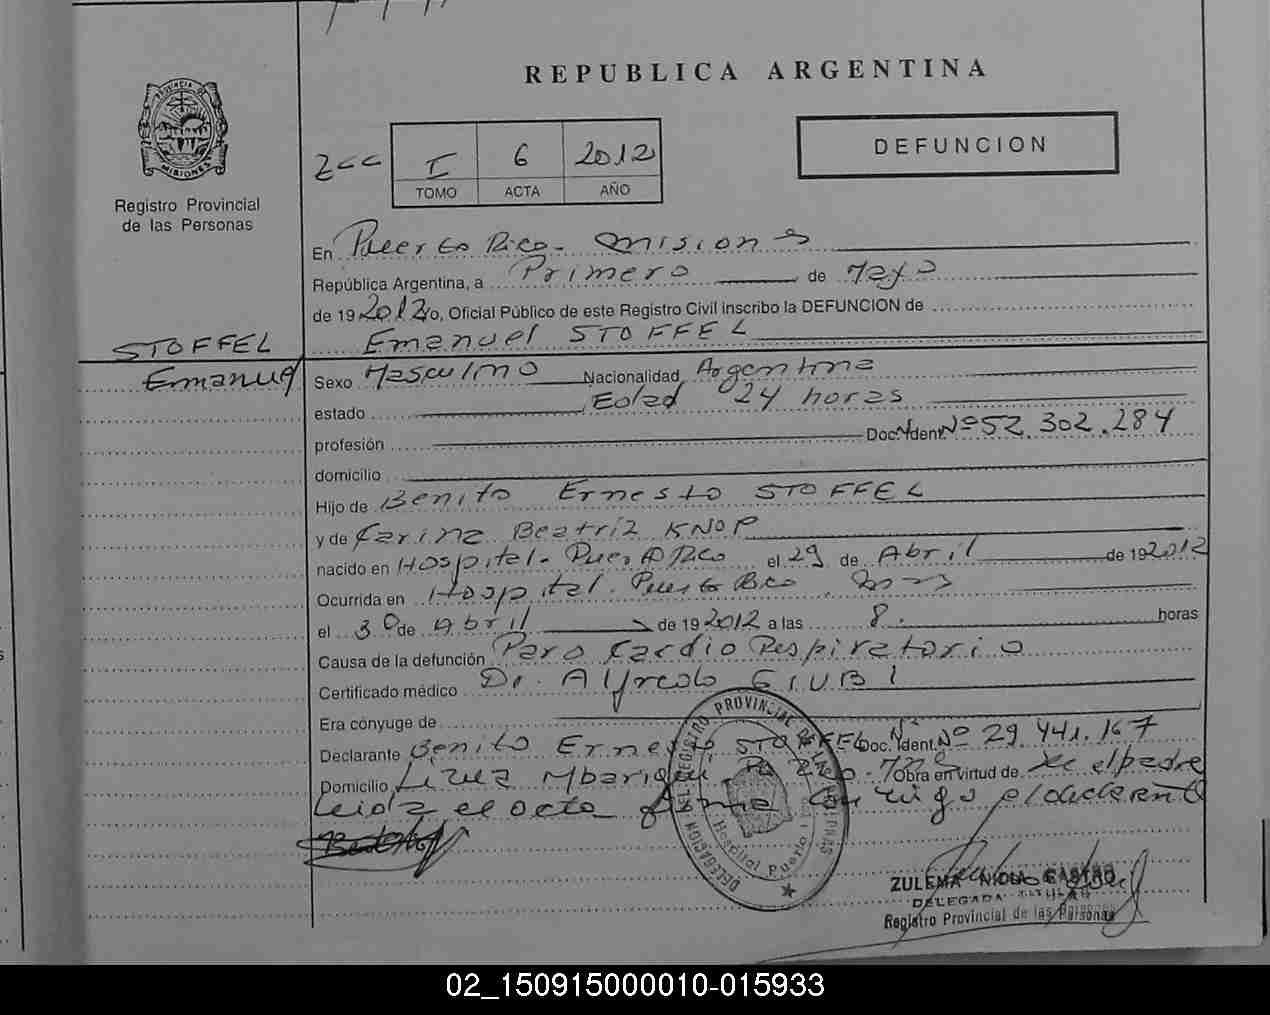 REPUBLICA ARGENTINA
PROVINCIA DE
MISIONES
Registro Provincial
de las Personas
2<<
I 6 2012
TOMO ACTA AÑO
DEFUNCION
En Puerto Rico - Misiones
República Argentina, a Primero de Mayo
de 19 2012 yo, Oficial Público de este Registro Civil inscribo la DEFUNCION de
Emanuel STOFFEL
STOFFEL
Emanuel
Sexo Masculino Nacionalidad Argentina
estado Edad 24 horas
profesión Doc. Ident. Nº 52.302.284
domicilio
Hijo de Benito Ernesto STOFFEL
y de Carina Beatriz KNOP
nacido en Hospital - Puerto Rico el 29 de Abril de 19 2012
Ocurrida en Hospital - Puerto Rico
el 30 de Abril de 19 2012 a las 8. horas
Causa de la defunción Paro Cardio Respiratorio
Certificado médico Dr. Alfredo GIUBI
Era cónyuge de
Declarante Benito Ernesto STOFFEL Doc. Ident. Nº 29.441.167
Domicilio Línea Mbarigui Obra en virtud de el padre
Leida el acta firma conmigo el declarante
DELEGACION DEL REGISTRO PROVINCIAL DE LAS PERSONAS
Hospital Puerto
ZULEMA NIDIA CASTRO
DELEGADA TITULAR
Registro Provincial de las Personas
02_150915000010-015933